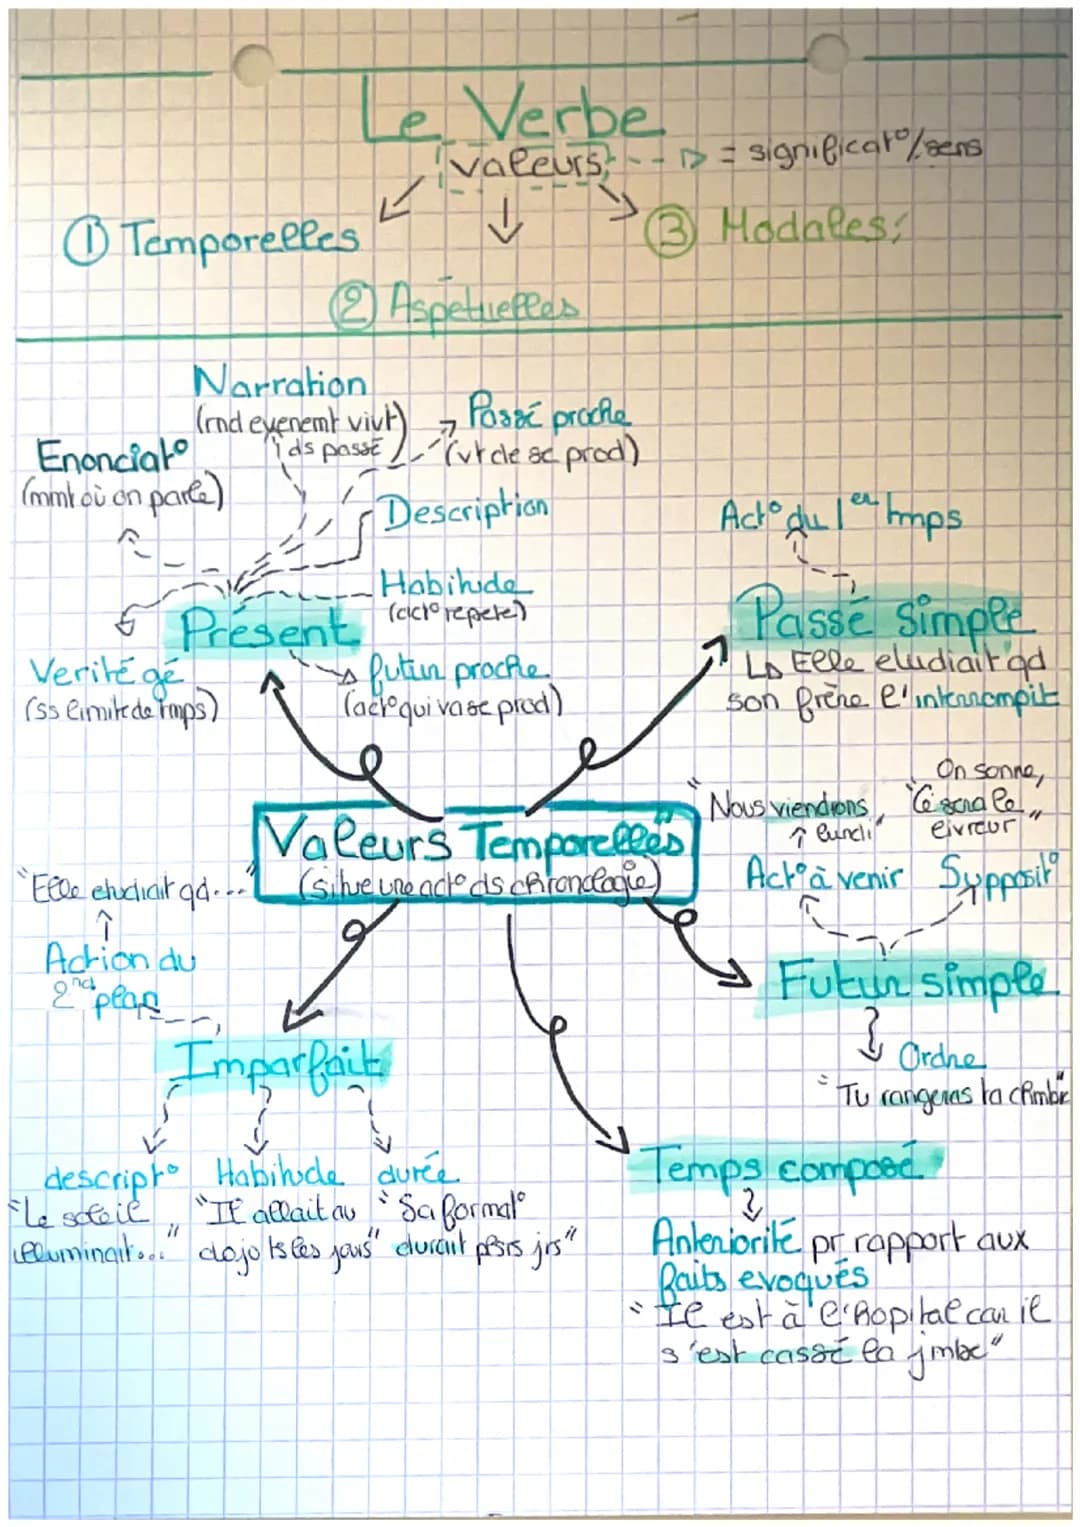 Le Verbe
valeurs = significat°/sens
① Temporelles
② Aspetuelles
③ Modales:
Narration
(rnd evenemt vivt)
ds passé
Passé proche
(vt de se prod)
Enonciat°
(mmt où on parle)
Description
Habitude
(act° repete)
Présent
Verité gé
(ss limite de tmps)
futur proche
(act° qui va se prod)
Act° du 1er tmps
Passé simple
↳ Elle etudiait qd
son frère l'interrompit
Valeurs Temporelles
(situe une act° ds chronologie)
"Nous viendrons
lundi"
On sonne,
"Ce sera le
livreur"
Act° à venir
Supposit°
Futur simple
Ordre
"Tu rangeras ta chmbr"
"Elle etudiait qd..."
Action du
2nd plan
Imparfait
descript°
"Le soleil
illuminait..."
Habitude
"Il allait au
dojo ts les jours"
durée
"Sa format°
durait plsrs jrs"
Temps composé
Anteriorité pr rapport aux
faits evoqués
"Il est à l'hopital car il
s'est cassé la jmbe"